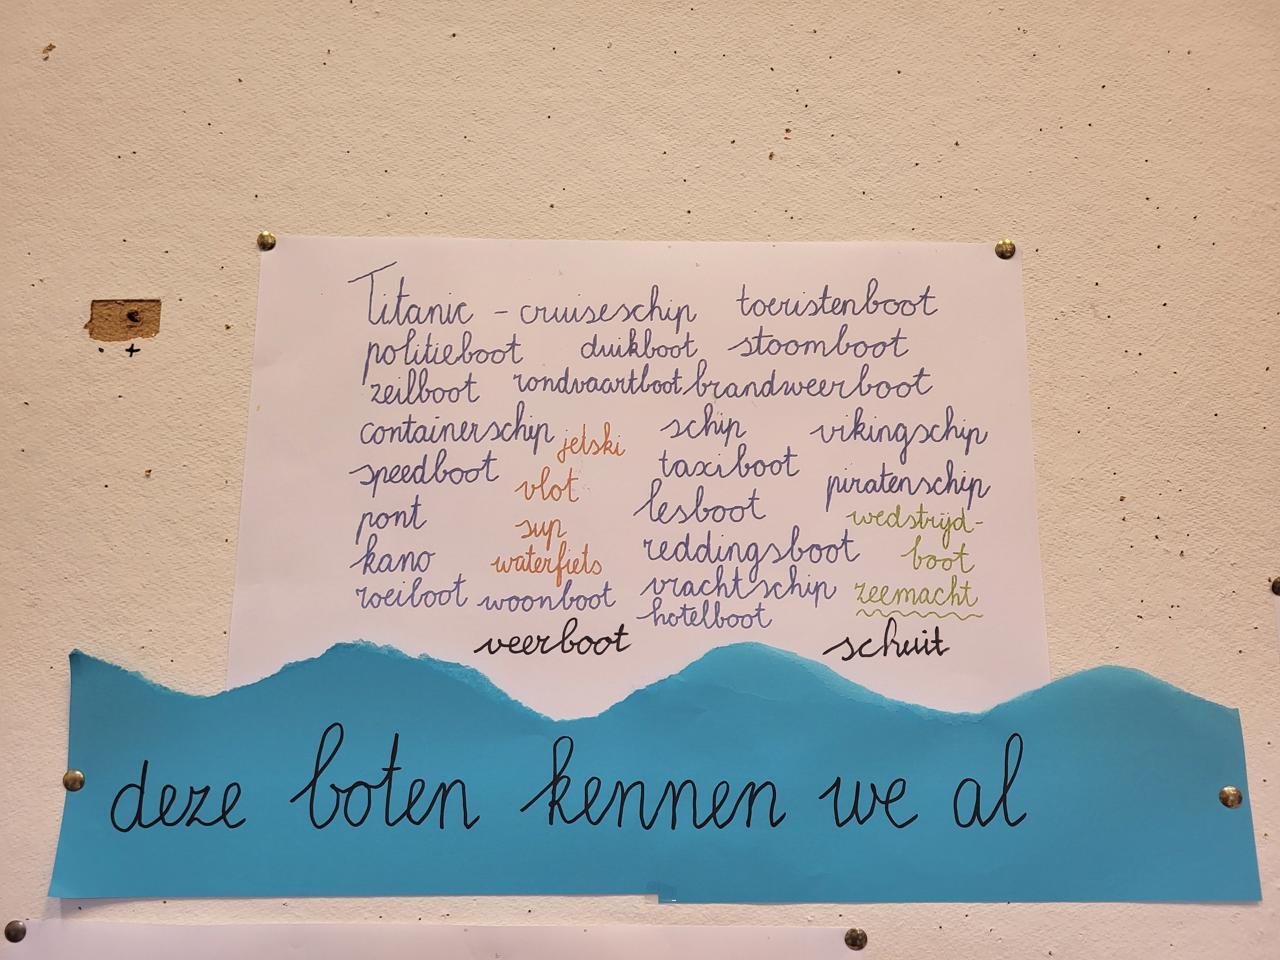 Titanic - cruiseschip toeristenboot
politieboot duikboot stoomboot
zeilboot rondvaartboot brandweerboot
containerschip jetski schip vikingschip
speedboot vlot taxiboot piratenschip
pont sup lesboot wedstrijd-
kano waterfiets reddingsboot boot
roeiboot woonboot vrachtschip zeemacht
hotelboot
veerboot schuit
deze boten kennen we al